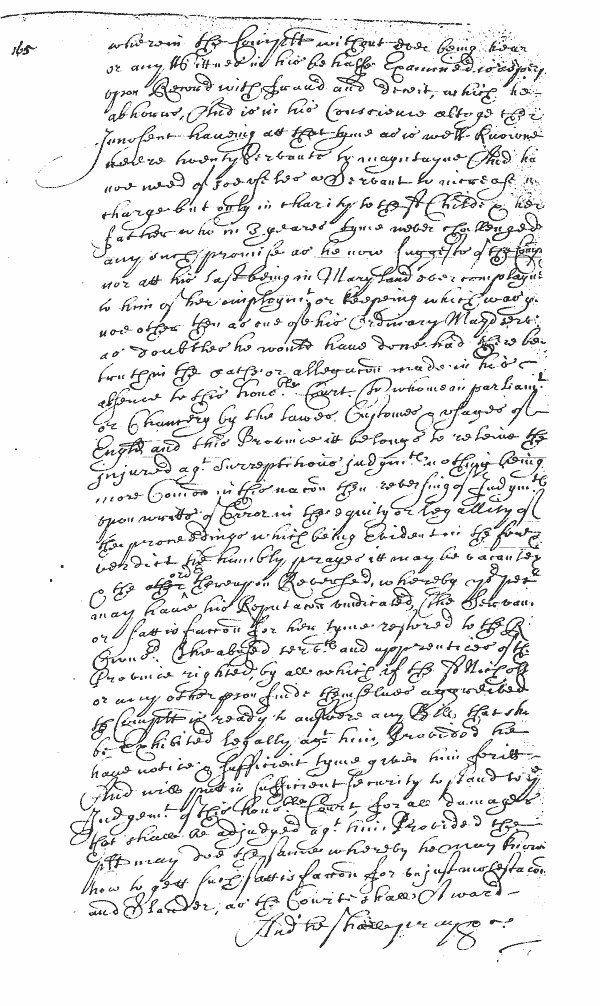 165
wherein the Complt without ever being hear
or any Wittnes in his behalfe Examined
upon Record with fraud and deceit, which he
abhours, And is in his Conscience altogether
Innosent haveing att that tyme as is well knowne
neere twenty Servants to mayntayne And ha
noe need of soe useles a Servant to increase
charge but only in charity to the sd Childe & her
father who in 3 yeares tyme never challenged
any such promise as he now suggests of the
nor att his last being in Maryland ever complayne
to him of her imploymt or keeping which was
noe other then as one of his Ordinary Mayd serv
as doubtles he would have done had there ben
truth in the oathe or allegacon made in his
absence to this honoble Court To whome in parliamt
or Chancery by the lawes Customes & usages of
Engld and this Province it belongs to releive the
Injured agt Surreptitious Judgmts nothing being
more Comon in this nacon then reversing of Judgmts
upon writts of Error in the equity or legallity of
the proceedings which being Evident in the
verdict he humbly prayes it may be vacanted
& the ord thereupon Reversed, whereby yor petr
may have his Reputacon vindicated, the Servant
or sattisfaccon for her tyme restored to the
Owner The abused servts and apprentices of the
Province righted by all which if the sd Nicholls
or any other pson finde themselves aggreived
the Complt is ready to answere any Bill that sh
be Exhibited legally agt him, Provided he
have notice & sufficient tyme given him
And will putt in sufficient Security to stand to ye
Judgemt of this honoble Court for all damages
that shall be adjudged agt him Provided the
plt may doe the same whereby he may know
how to gett such sattisfaccon for unjust molestacon
and Slander, as the Court shall Award
And he shall pray &c.